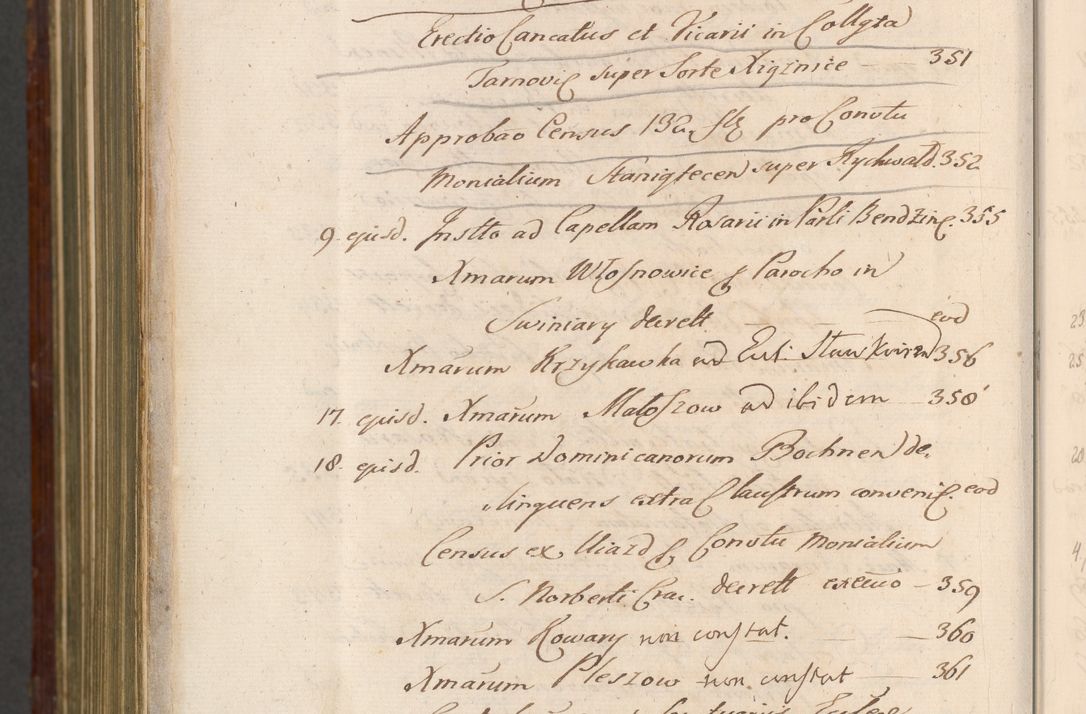 Erectio Cancalus et Vicarii in Collgta
Tarnoviẽ super Sorte Xigznice — 351
Approbao Census 132 pro Conotu
Monialium Staniątecen super Rychwałd. 352
9. ejusd. Instto ad Capellam Rosarii in Parli Bendzinẽ. 355
Xmarum Włosnowice Parocho in
Swiniary decrett. — eod
Xmarum Krzykawka ad Eccl. 356
17. ejusd. Xmarum Małoszow ad ibidem — 358
18. ejusd. Prior Dominicanorum Bochnen de,
linquens extra Claustrum conveniẽ. eod
Census ex Uiazd Conotu Monialium
S. Norberti Crac. decrett execuo — 359
Xmarum Kowary non constat. — 360
Xmarum Pleszow non constat — 361